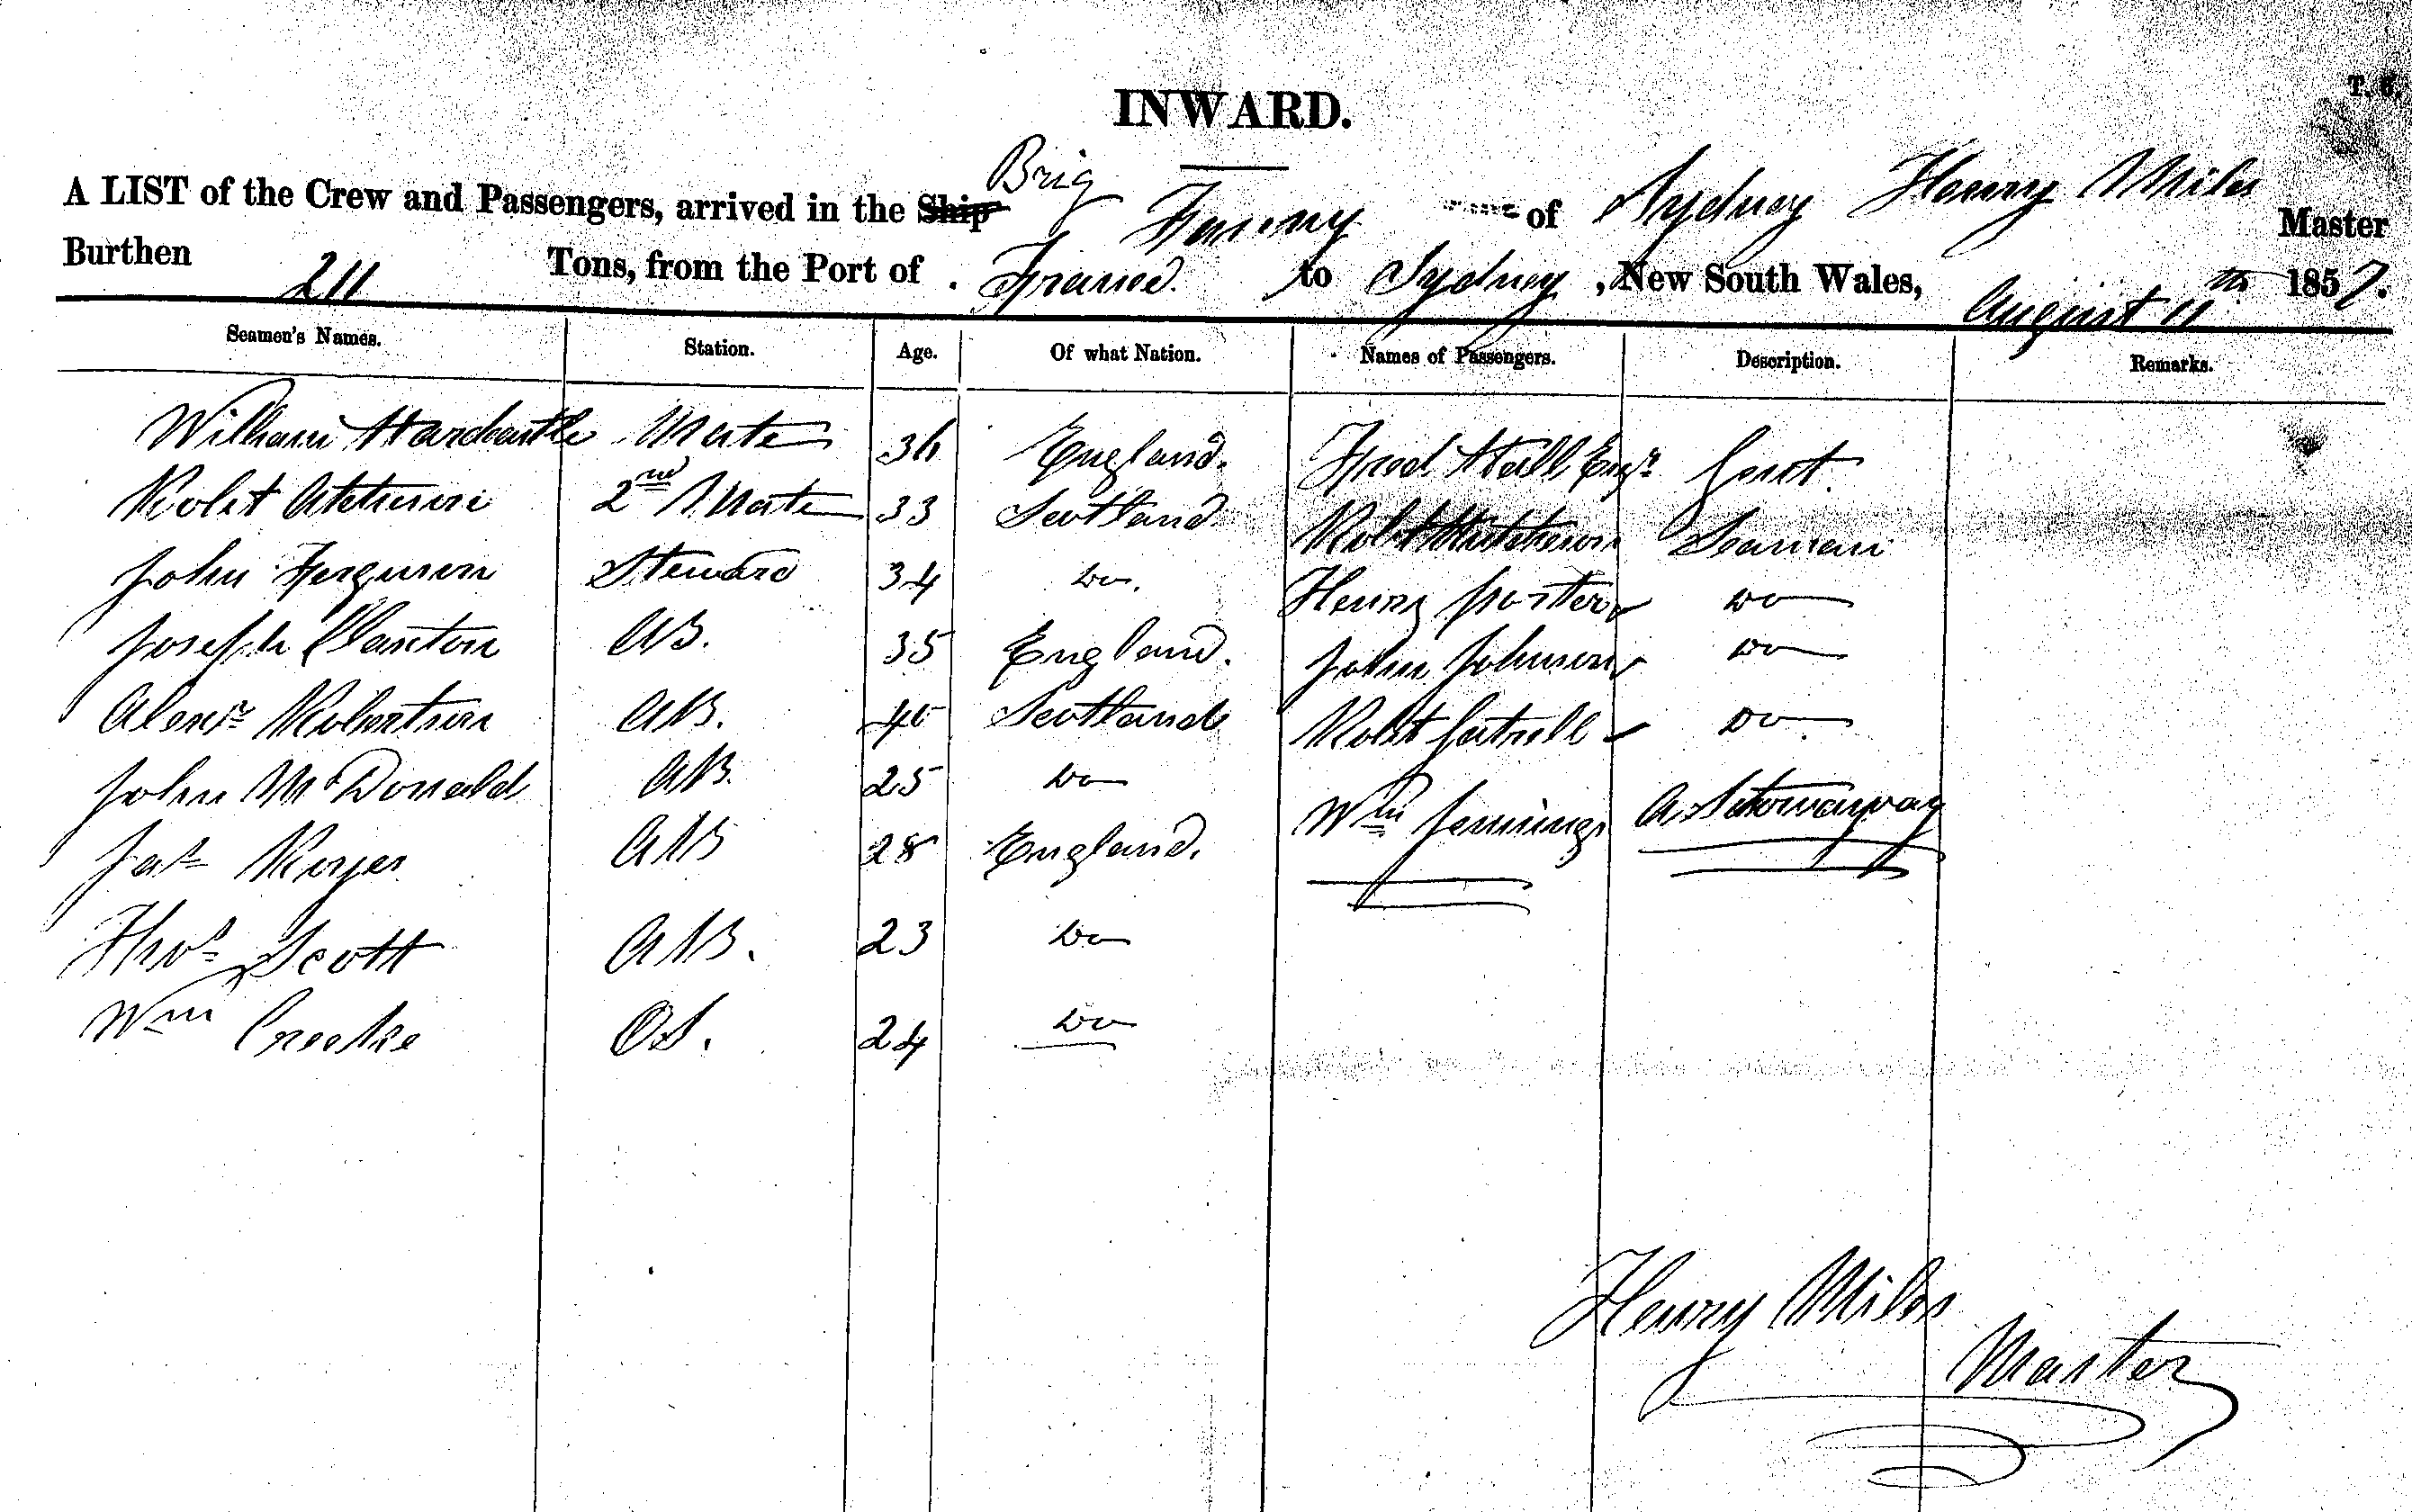 T. 6.
INWARD.
A LIST of the Crew and Passengers, arrived in the Ship Brig Fanny of Sydney Henry Miles Master
Burthen 211 Tons, from the Port of France to Sydney, New South Wales, August 11th 1857.
Seamen's Names. Station. Age. Of what Nation. Names of Passengers. Description. Remarks.
William Hardcastle Mate 36 England. Fred Hall Esqr Gent.
Robt 2nd Mate 33 Scotland Robt Hutcheson Seaman
John Ferguson Steward 34 Do. Henry Do
Joseph Clanton AB. 35 England. John Johnson Do
Alexr Robertson AB. 40 Scotland Robt Do
John McDonald AB. 25 Do Wm Jennings A Stowaway
Jas AB 28 England.
Thos Scott AB. 23 Do
Wm OS. 24 Do
Henry Miles
Master